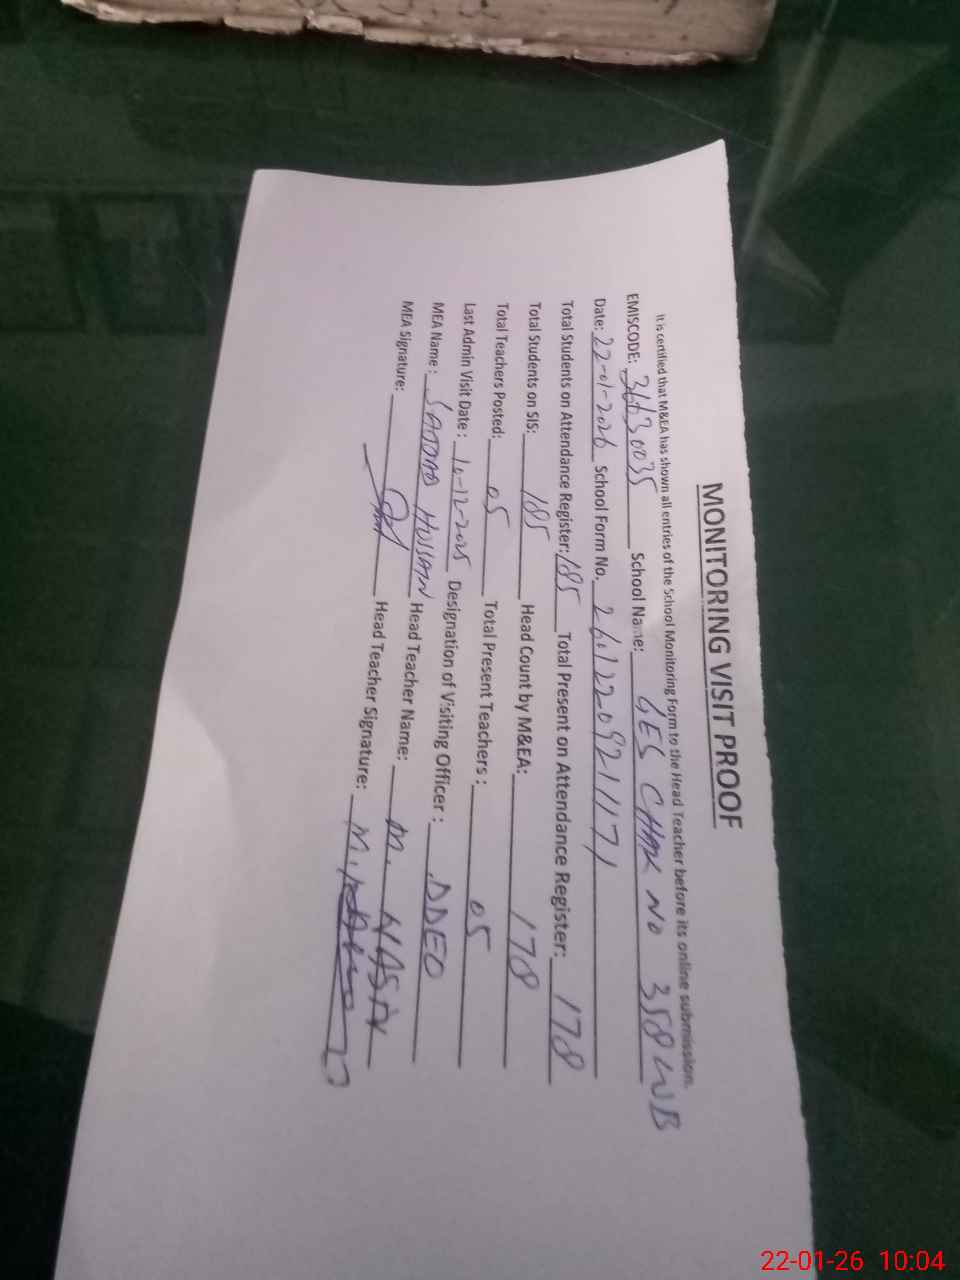 MONITORING VISIT PROOF
It is certified that M&EA has shown all entries of the School Monitoring Form to the Head Teacher before its online submission.
EMISCODE: 36630035 School Name: GES CHAK NO 358 WB
Date: 22-01-2026 School Form No. 260122092111171
Total Students on Attendance Register: 185 Total Present on Attendance Register: 178
Total Students on SIS: 185 Head Count by M&EA: 178
Total Teachers Posted: 05 Total Present Teachers : 05
Last Admin Visit Date : 10-12-2025 Designation of Visiting Officer : DDEO
MEA Name : HUSSAIN Head Teacher Name: M.
MEA Signature: Head Teacher Signature: M.
22-01-26 10:04